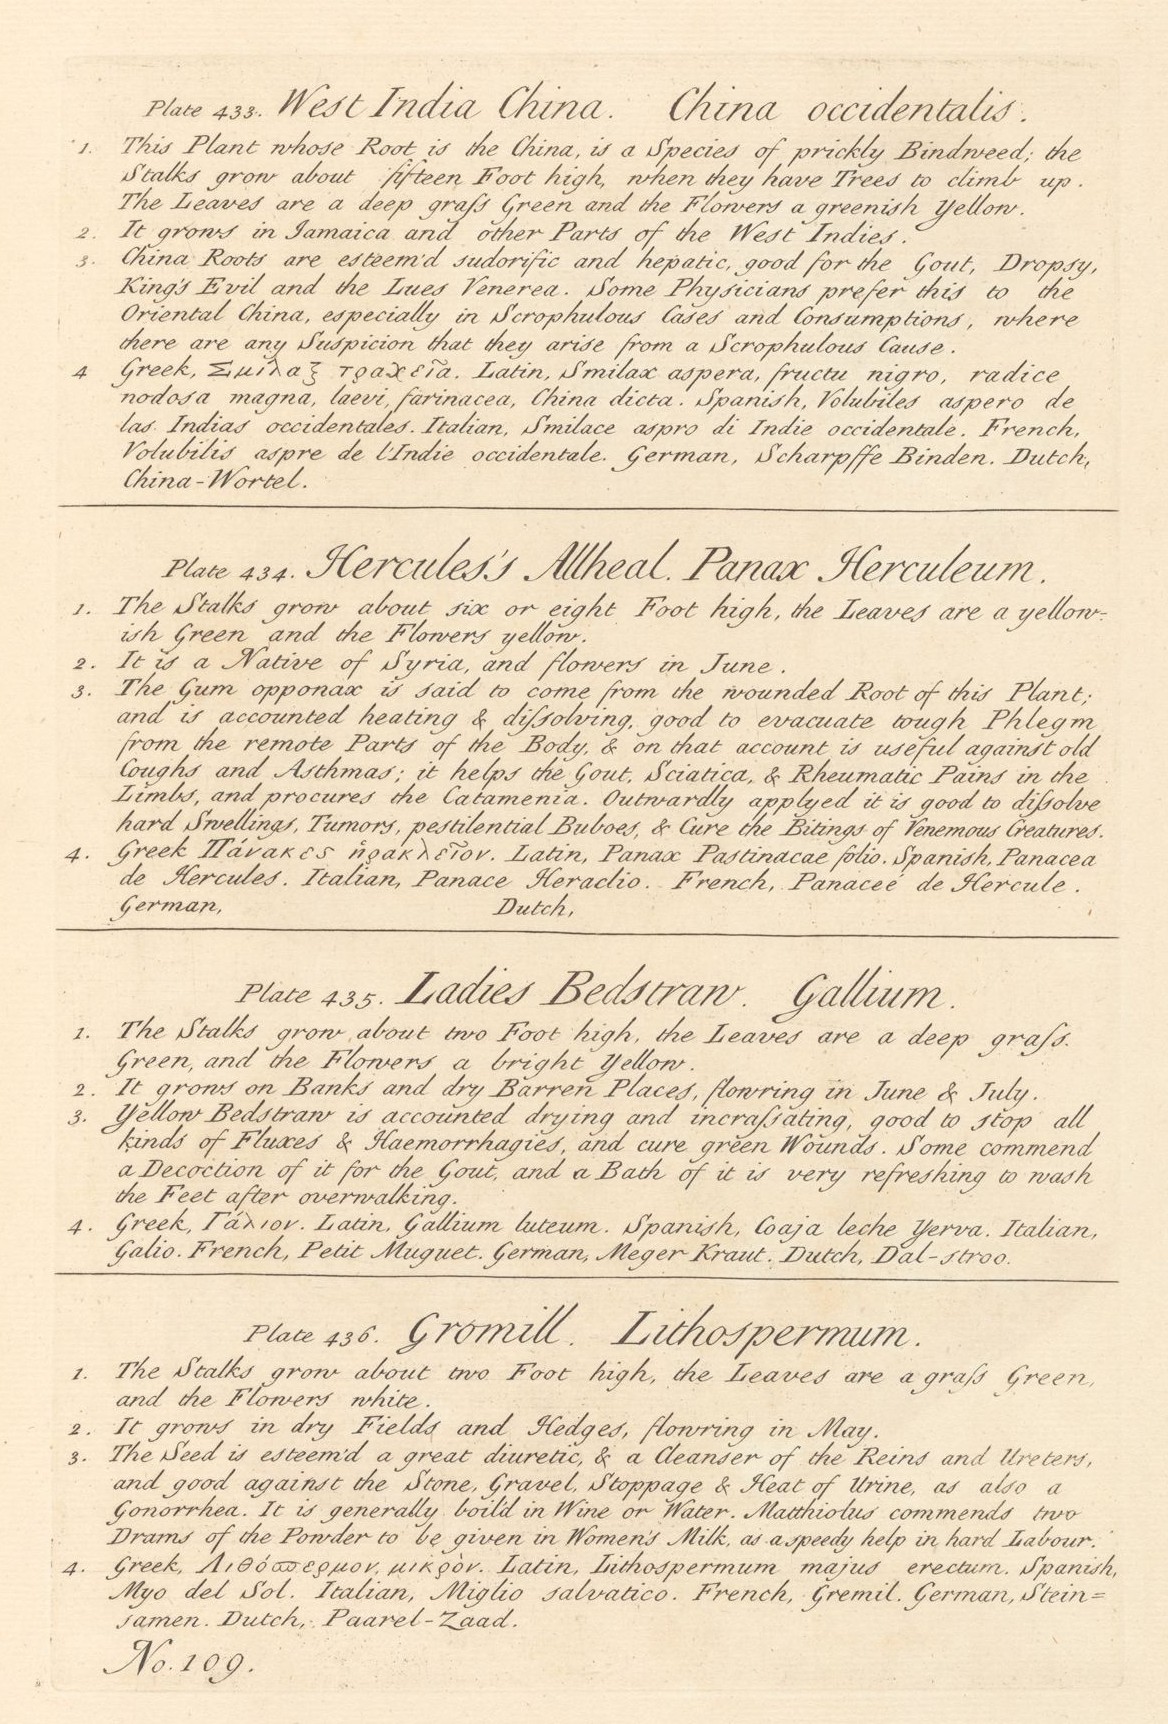 Plate 433. West India China. China occidentalis.
1. This Plant whose Root is the China, is a Species of prickly Bindweed; the
Stalks grow about fifteen Foot high, when they have Trees to climb up.
The Leaves are a deep graſs Green and the Flowers a greenish Yellow.
2. It grows in Jamaica and other Parts of the West Indies.
3. China Roots are esteem'd sudorific and hepatic, good for the Gout, Dropsy,
King's Evil and the Lues Venerea. Some Physicians prefer this to the
Oriental China, especially in Scrophulous Cases and Consumptions, where
there are any Suspicion that they arise from a Scrophulous Cause.
4 Greek, Σμίλαξ τραχεῖα. Latin, Smilax aspera, fructu nigro, radice
nodosa magna, laevi, farinacea, China dicta. Spanish, Volubiles aspero de
las Indias occidentales. Italian, Smilace aspro di Indie occidentale. French,
Volubilis aspre de l'Indie occidentale. German, Scharpffe Binden. Dutch,
China-Wortel.
Plate 434. Hercules's Allheal. Panax Herculeum.
1. The Stalks grow about six or eight Foot high, the Leaves are a yellow=
ish Green and the Flowers yellow.
2. It is a Native of Syria, and flowers in June.
3. The Gum opponax is said to come from the wounded Root of this Plant;
and is accounted heating & diſsolving, good to evacuate tough Phlegm
from the remote Parts of the Body, & on that account is useful against old
Coughs and Asthmas; it helps the Gout, Sciatica, & Rheumatic Pains in the
Limbs, and procures the Catamenia. Outwardly applyed it is good to diſsolve
hard Swellings, Tumors, pestilential Buboes, & Cure the Bitings of Venemous Creatures.
4. Greek Πάνακες ἡρακλεῖον. Latin, Panax Pastinacae folio. Spanish, Panacea
de Hercules. Italian, Panace Heraclio. French, Panaceé de Hercule.
German, Dutch,
Plate 435. Ladies Bedstraw. Gallium.
1. The Stalks grow about two Foot high, the Leaves are a deep graſs
Green, and the Flowers a bright Yellow.
2. It grows on Banks and dry Barren Places, flowring in June & July.
3. Yellow Bedstraw is accounted drying and incraſsating, good to stop all
kinds of Fluxes & Haemorrhagies, and cure green Wounds. Some commend
a Decoction of it for the Gout, and a Bath of it is very refreshing to wash
the Feet after overwalking.
4. Greek, Γάλιον. Latin, Gallium luteum. Spanish, Coaja leche Yerva. Italian,
Galio. French, Petit Muguet. German, Meger Kraut. Dutch, Dal-stroo.
Plate 436. Gromill. Lithospermum.
1. The Stalks grow about two Foot high, the Leaves are a graſs Green,
and the Flowers white.
2. It grows in dry Fields and Hedges, flowring in May.
3. The Seed is esteem'd a great diuretic, & a Cleanser of the Reins and Ureters,
and good against the Stone, Gravel, Stoppage & Heat of Urine, as also a
Gonorrhea. It is generally boil'd in Wine or Water. Matthiolus commends two
Drams of the Powder to be given in Women's Milk, as a speedy help in hard Labour.
4. Greek, Λιθόσπερμον μικρὸν. Latin, Lithospermum majus erectum. Spanish,
Myo del Sol. Italian, Miglio salvatico. French, Gremil. German, Stein=
samen. Dutch, Paarel-Zaad.
No. 109.